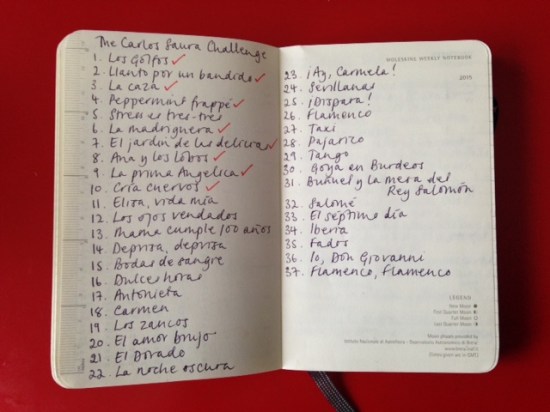 The Carlos Saura Challenge
1. Los Golfos ✓
2. Llanto por un bandido ✓
3. La caza ✓
4. Peppermint frappé ✓
5. Stress es tres-tres
6. La madriguera ✓
7. El jardín de las delicias ✓
8. Ana y los lobos ✓
9. La prima Angelica ✓
10. Cría cuervos ✓
11. Elisa, vida mía
12. Los ojos vendados
13. Mama cumple 100 años
14. Deprisa, deprisa
15. Bodas de sangre
16. Dulces horas
17. Antonieta
18. Carmen
19. Los zancos
20. El amor brujo
21. El Dorado
22. La noche oscura
MOLESKINE WEEKLY NOTEBOOK
2015
23. ¡Ay, Carmela!
24. Sevillanas
25. ¡Dispara!
26. Flamenco
27. Taxi
28. Pajarico
29. Tango
30. Goya en Burdeos
31. Buñuel y la mesa del
Rey Salomón
32. Salomé
33. El séptimo día
34. Iberia
35. Fados
36. Io, Don Giovanni
37. Flamenco, Flamenco
LEGEND
New Moon
First Quarter Moon
Full Moon
Last Quarter Moon
Moon phases provided by